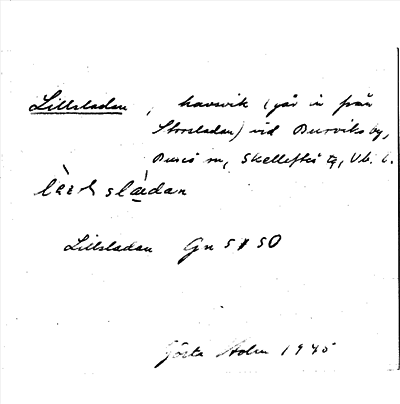 Lillsladan, havsvik (går in från
Storsladan) vid Burviks by,
Bureå sn, Skellefteå tg, Vb. l.
Lillsladan Gn 5150
Gösta Holm 1945